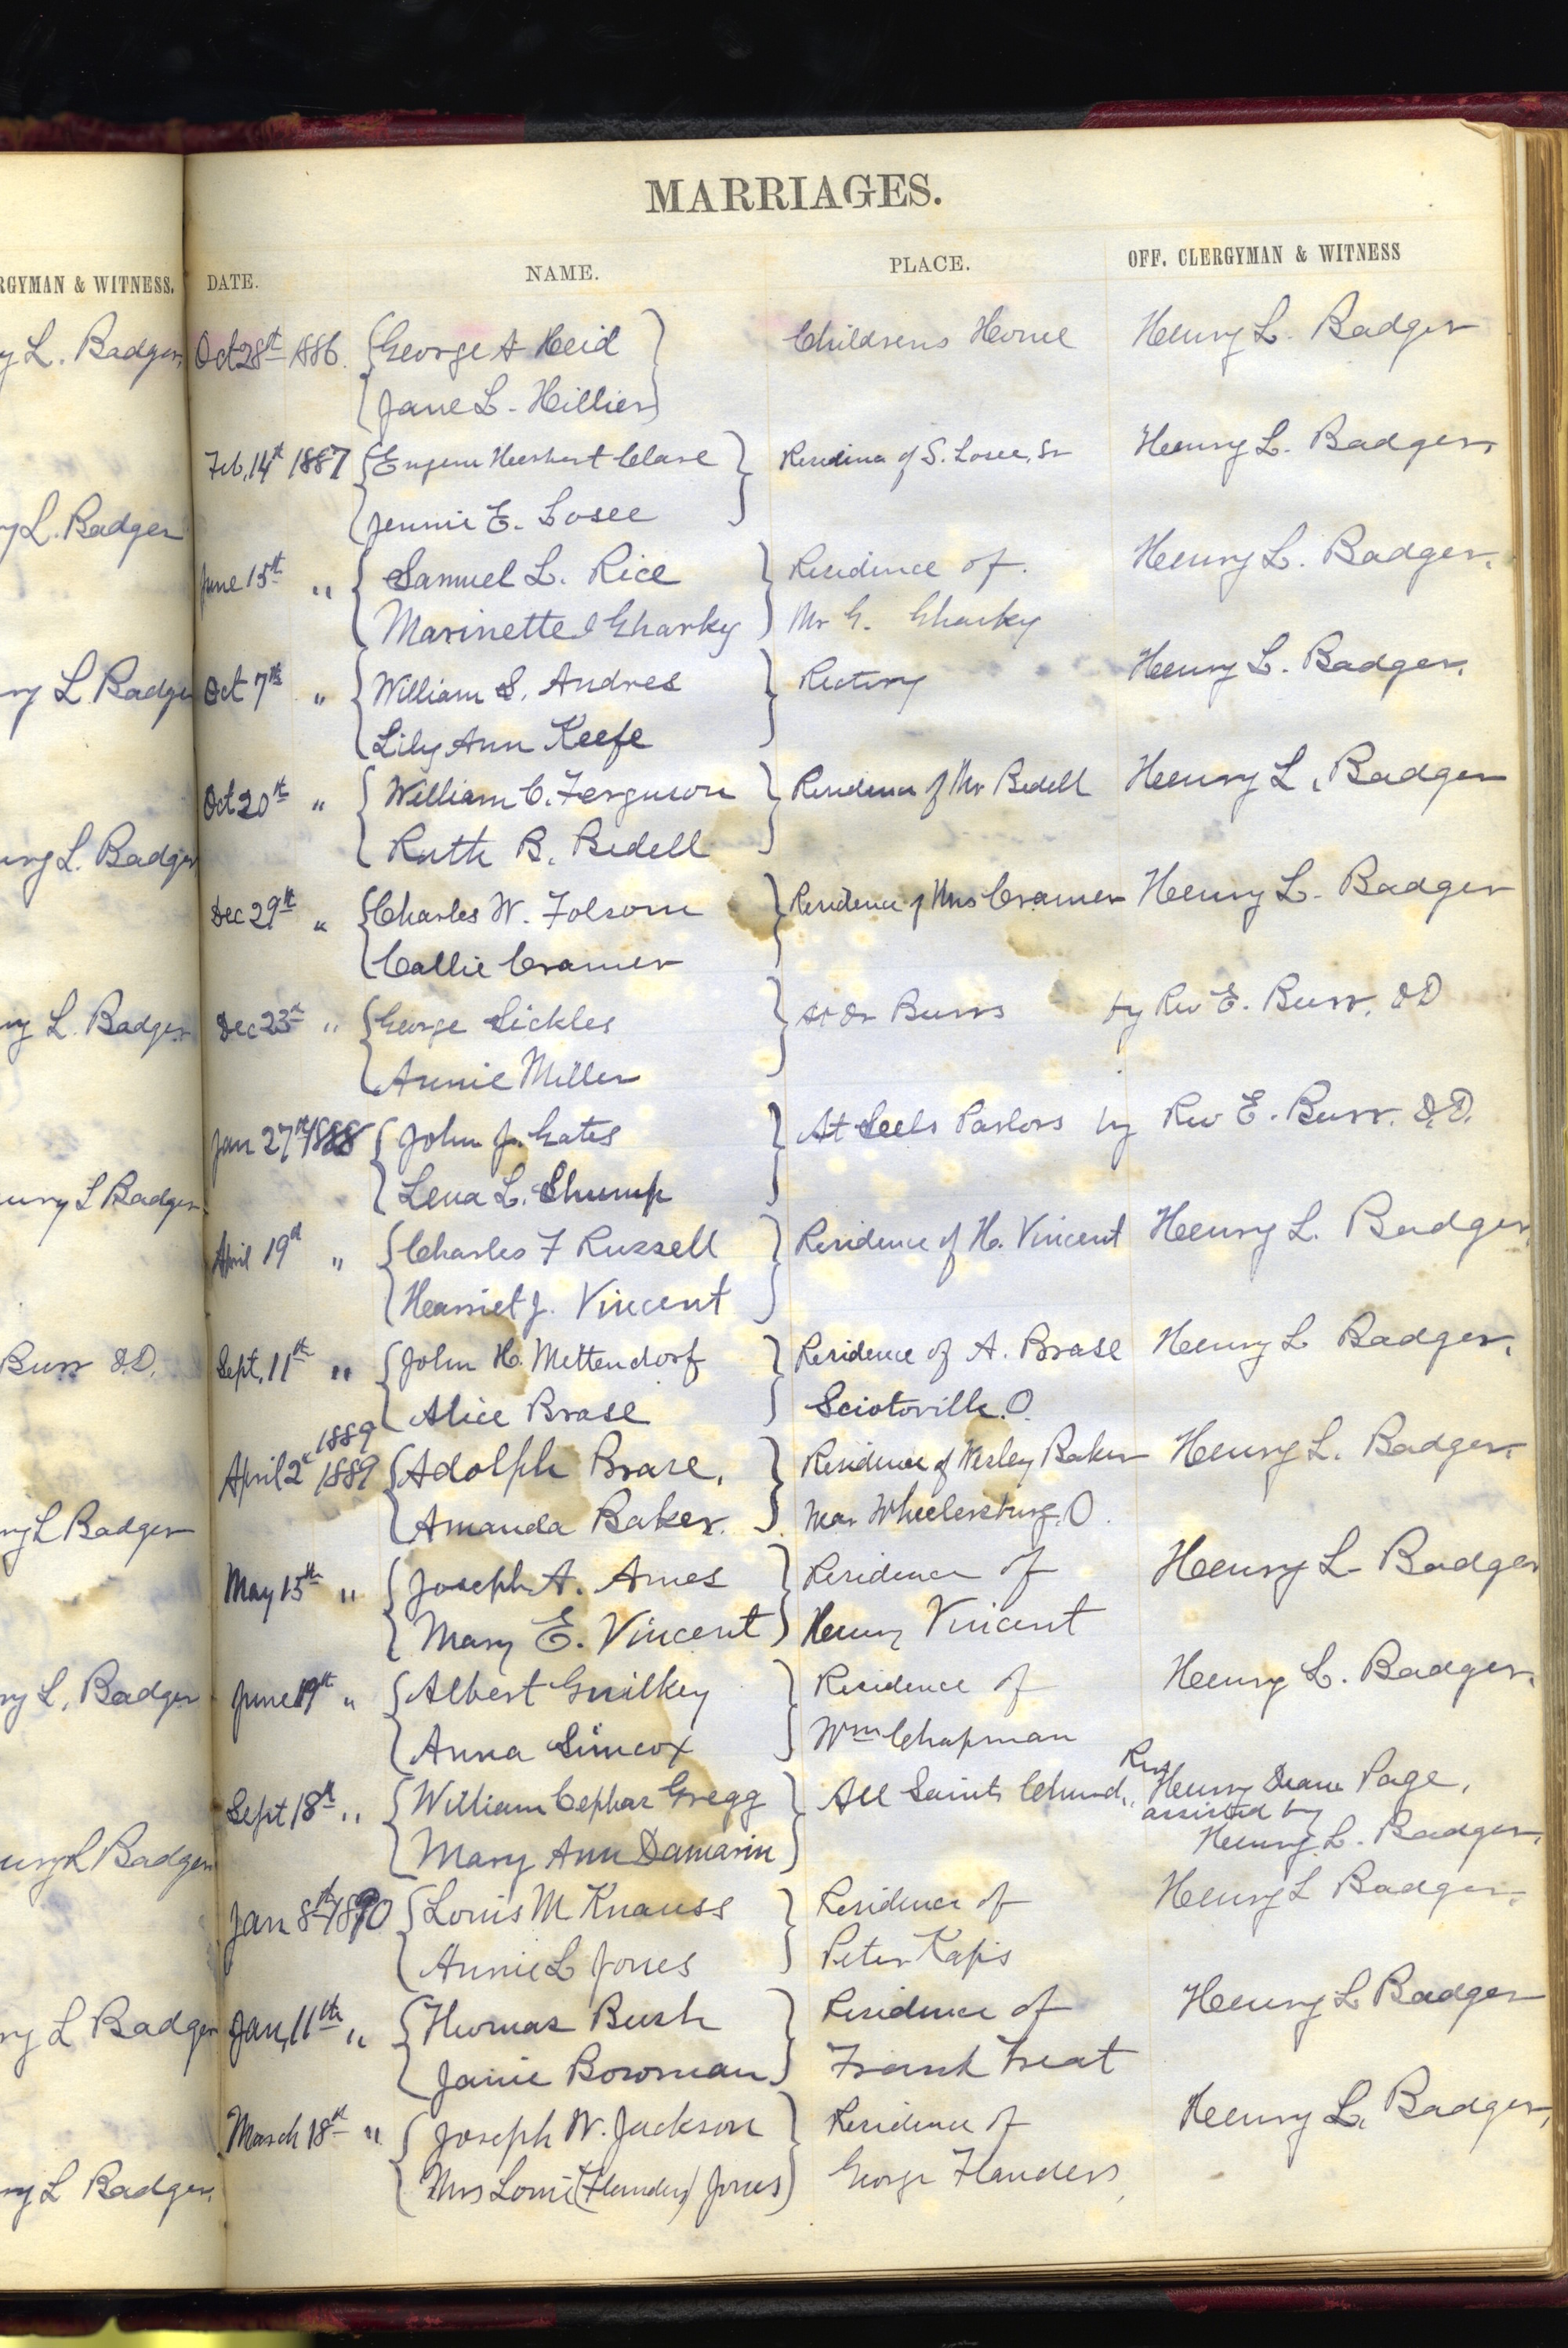 MARRIAGES.
RGYMAN & WITNESS. DATE. NAME. PLACE. OFF. CLERGYMAN & WITNESS
y L. Badger, Oct 28th 1886. George A Heid Childrens Home Henry L. Badger
Jane L. Hillier
Feb. 14th 1887 Eugene Herbert Clare Residence of S. Losee, Sr Henry L. Badger,
y L. Badger Jennie E. Losee
June 15th " Samuel L. Rice Residence of. Henry L. Badger,
Marinette Gharky Mr G. Gharky
ry L Badger Oct 7th " William S. Andres Rectory Henry L. Badger,
Lily Ann Keefe
Oct 20th " William C. Ferguson Residence of Mr Bedell Henry L. Badger
nry L. Badger Ruth B. Bedell
Dec 29th " Charles W. Folsom Residence of Mrs Cramer Henry L. Badger
Callie Cramer
ry L. Badger Dec 23rd " George Sickles At Dr Burrs by Rev E. Burr. DD
Annie Miller
Jan 27th 1888 John J. Gates At Seels Parlors by Rev E. Burr. D.D.
enry L Badger Lena L. Shump
April 19th " Charles F Russell Residence of H. Vincent Henry L. Badger,
Harriet J. Vincent
Burr D.D. Sept. 11th " John H. Mittendorf Residence of A. Brase Henry L Badger,
Alice Brase Sciotoville. O.
1889
April 2d 1889 Adolph Brase, Residence of Wesley Baker Henry L. Badger,
ry L Badger Amanda Baker. Near Wheelersburg, O.
May 15th " Joseph A. Ames Residence of Henry L. Badger
Mary E. Vincent Henry Vincent
ry L. Badger June 19th " Albert Guilkey Residence of Henry L. Badger,
Anna Simcox Wm Chapman
Sept 18th " William Cephas Gregg All Saints Church, Rev Henry Deane Page,
assisted by
enry L Badger Mary Ann Damarin Henry L. Badger,
Jan 8th 1890 Louis M Knauss Residence of Henry L Badger,
Annie L Jones Peter Kaps
ry L Badger Jan, 11th " Thomas Bush Residence of Henry L Badger
Janie Bowman Frank Treat
March 18th " Joseph W. Jackson Residence of Henry L. Badger,
ry L Badger, Mrs (Flanders) Jones George Flanders,